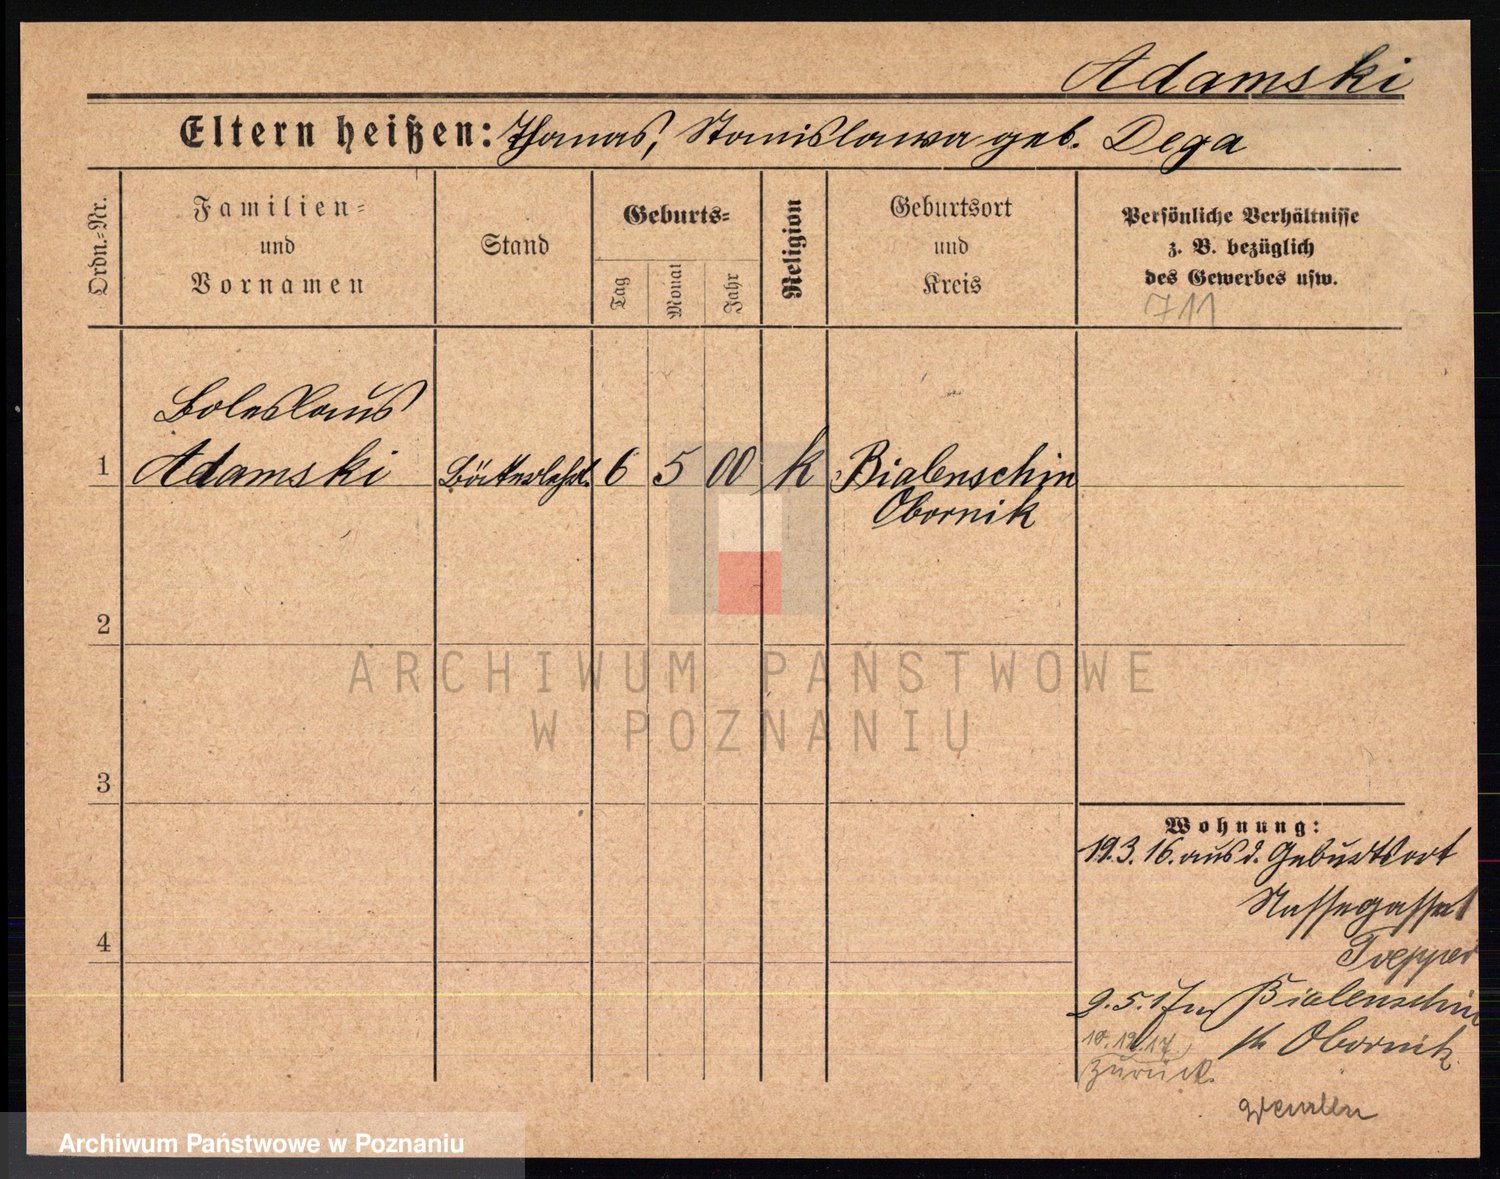 Adamski
Eltern heißen: Thomas, Stanislawa geb. Dega
Ordn.=Nr.
Familien=
und
Vornamen
Stand
Geburts=
Tag
Monat
Jahr
Religion
Geburtsort
und
Kreis
Persönliche Verhältnisse
z. B. bezüglich
des Gewerbes usw.
711
Boleslaus
1 Adamski Bäckerlehrl. 6 5 00 k Bialenschin
Obornik
2
ARCHIWUM PAŃSTWOWE
W POZNANIU
3
Wohnung:
19.3.16. aus d. Geburtsort
Nassegasse 1
9.5.17 n Bialenschin
Obornik
10.12.17
zurück.
wenden
4
Archiwum Państwowe w Poznaniu